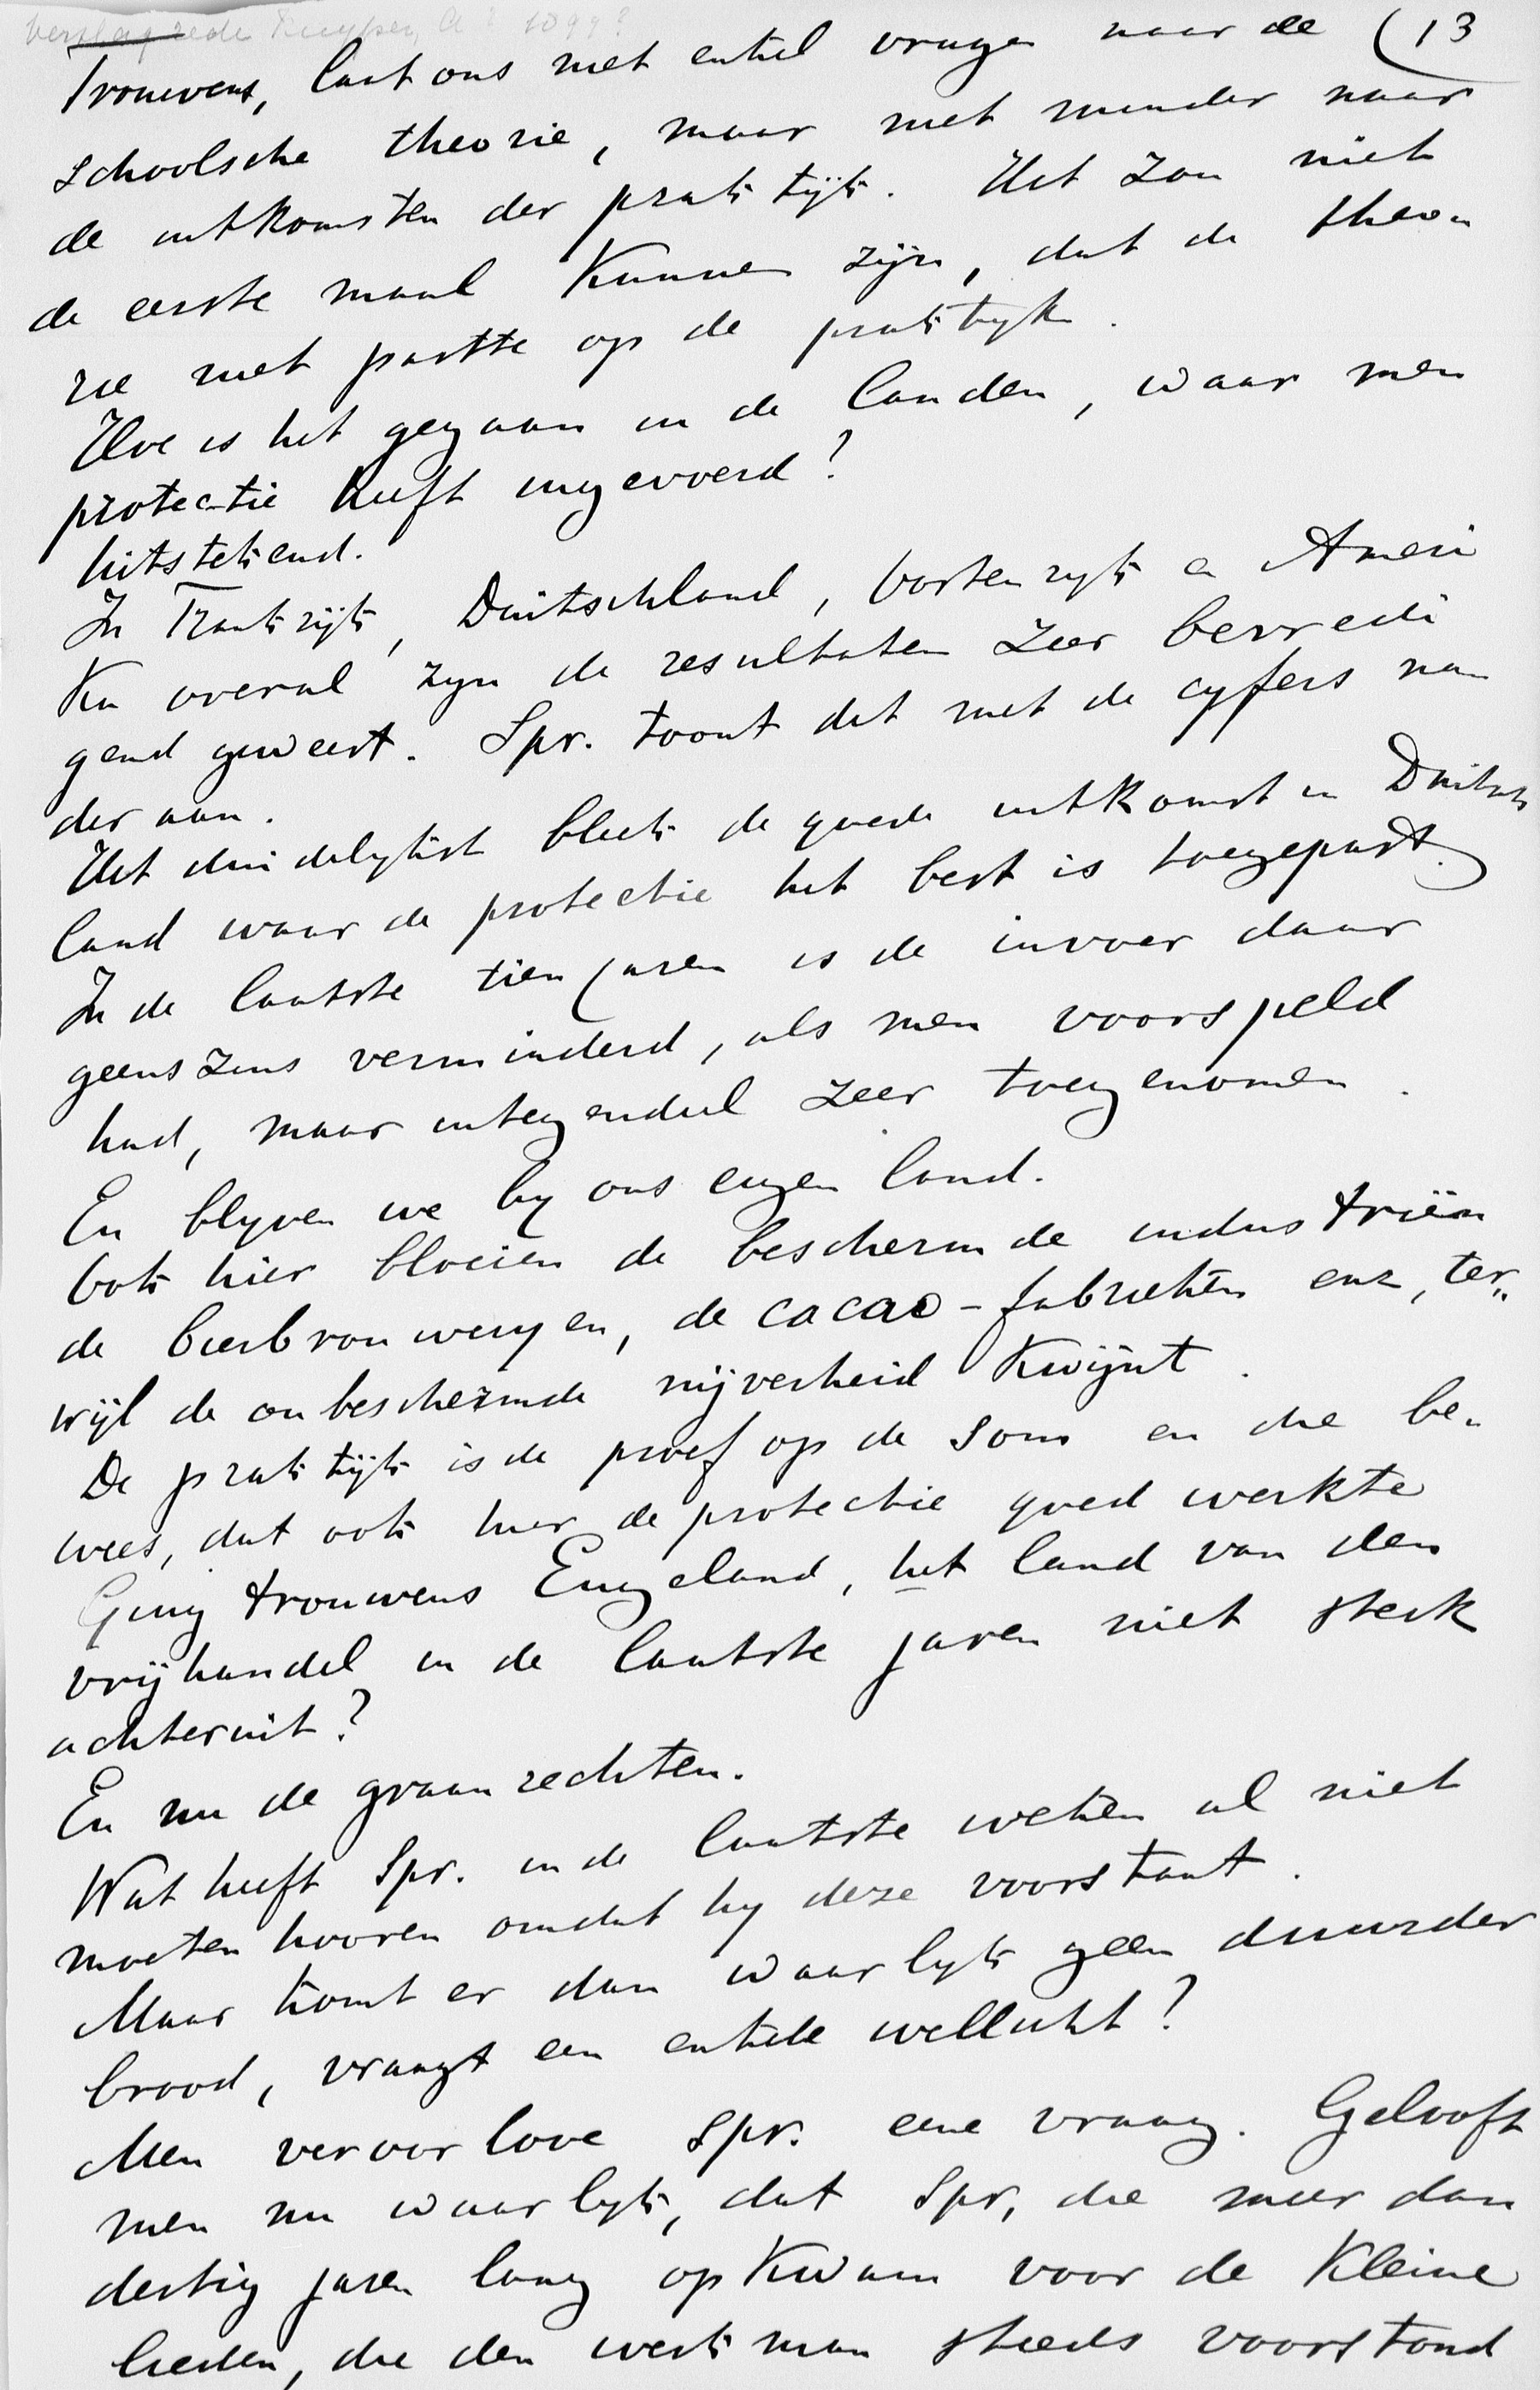 verslag rede Kuyper, A? 1899?
(13
Trouwens, laat ons niet enkel vragen naar de
schoolsche theorie, maar niet minder naar
de uitkomsten der praktijk. Het zou niet
de eerste maal kunnen zijn, dat de theo-
rie niet paste op de praktyk.
Hoe is het gegaan in de landen, waar men
protectie heeft ingevoerd?
Uitstekend.
In Frankrijk, Duitschland, Oostenryk en Ameri
ka overal zyn de resultaten zeer bevredi
gend geweest. Spr. toont dit met de cyfers na-
der aan.
Het duidelykst bleek de goede uitkomst in Duitsch
land waar de protectie het best is toegepast.
In de laatste tien jaren is de invoer daar
geenszins verminderd, als men voorspeld
had, maar integendeel zeer toegenomen.
En blyven we by ons eigen land.
Ook hier bloeien de beschermde industriën
de bierbrouweryen, de cacao-fabrieken enz, ter„
wijl de onbeschermde nijverheid kwijnt.
De praktijk is de proef op de som en die be-
wees, dat ook hier de protectie goed werkte
Ging trouwens Engeland, het land van den
vrijhandel in de laatste jaren niet sterk
achteruit?
En nu de graanrechten.
Wat heeft Spr. in de laatste weken al niet
moeten hooren omdat hy deze voorstaat.
Maar komt er dan waarlyk geen duurder
brood, vraagt een enkele wellicht?
Men veroorlove Spr. eene vraag. Gelooft
men nu waarlyk, dat Spr, die meer dan
dertig jaren lang opkwam voor de kleine
lieden, die den werkman steeds voorstond